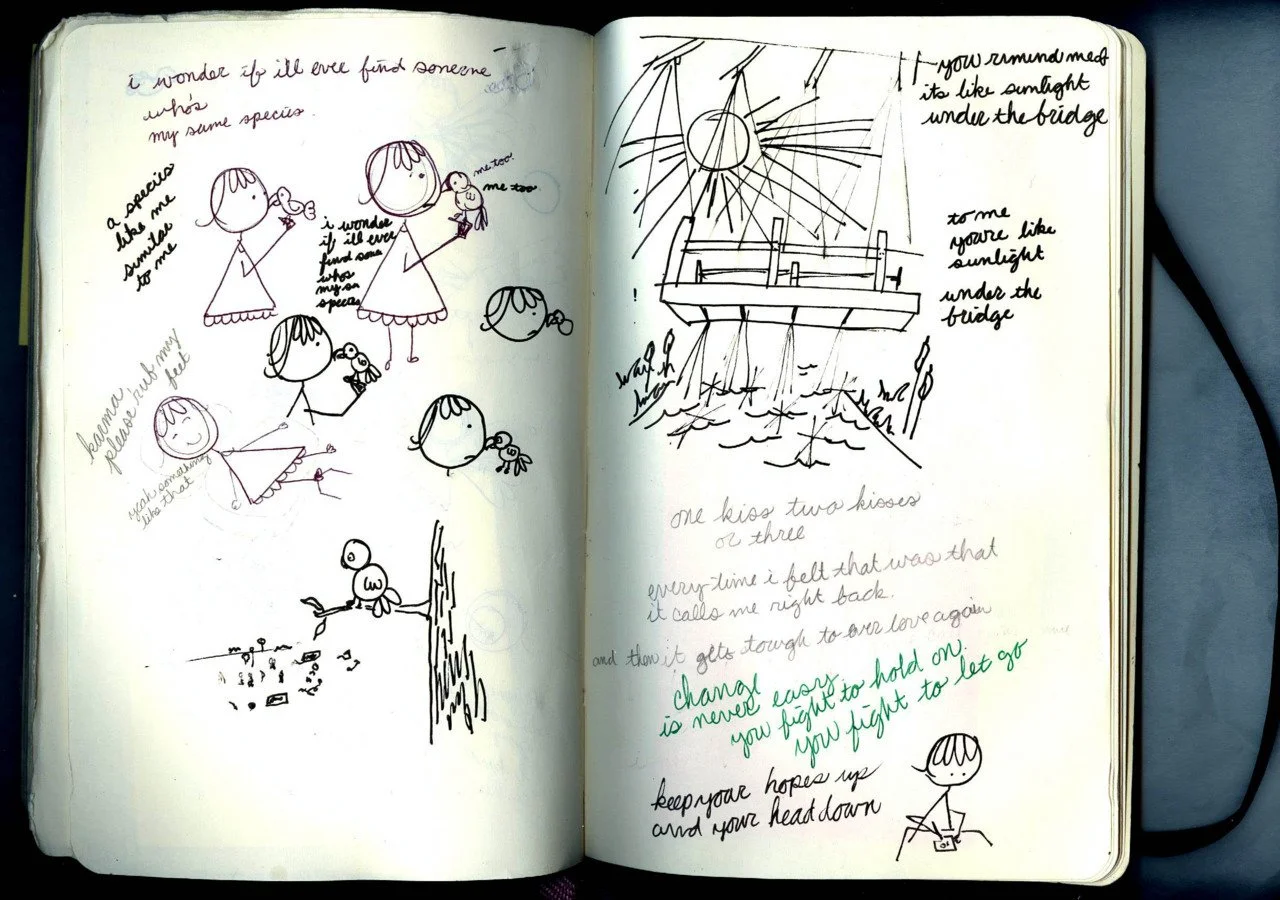 i wonder if ill ever find someone
who's
my same species.
a species
like me
similar
to me
me too.
me too
i wonder
if ill ever
find some
whos
my sa
species
karma
please rub my
feet
yeah something
like that
you remind me of
its like sunlight
under the bridge
to me
youre like
sunlight
under the
bridge
one kiss two kisses
or three
every time i felt that was that
it calls me right back.
and then it gets tough to ever love again
change
is never easy
you fight to hold on
you fight to let go
keep your hopes up
and your head down